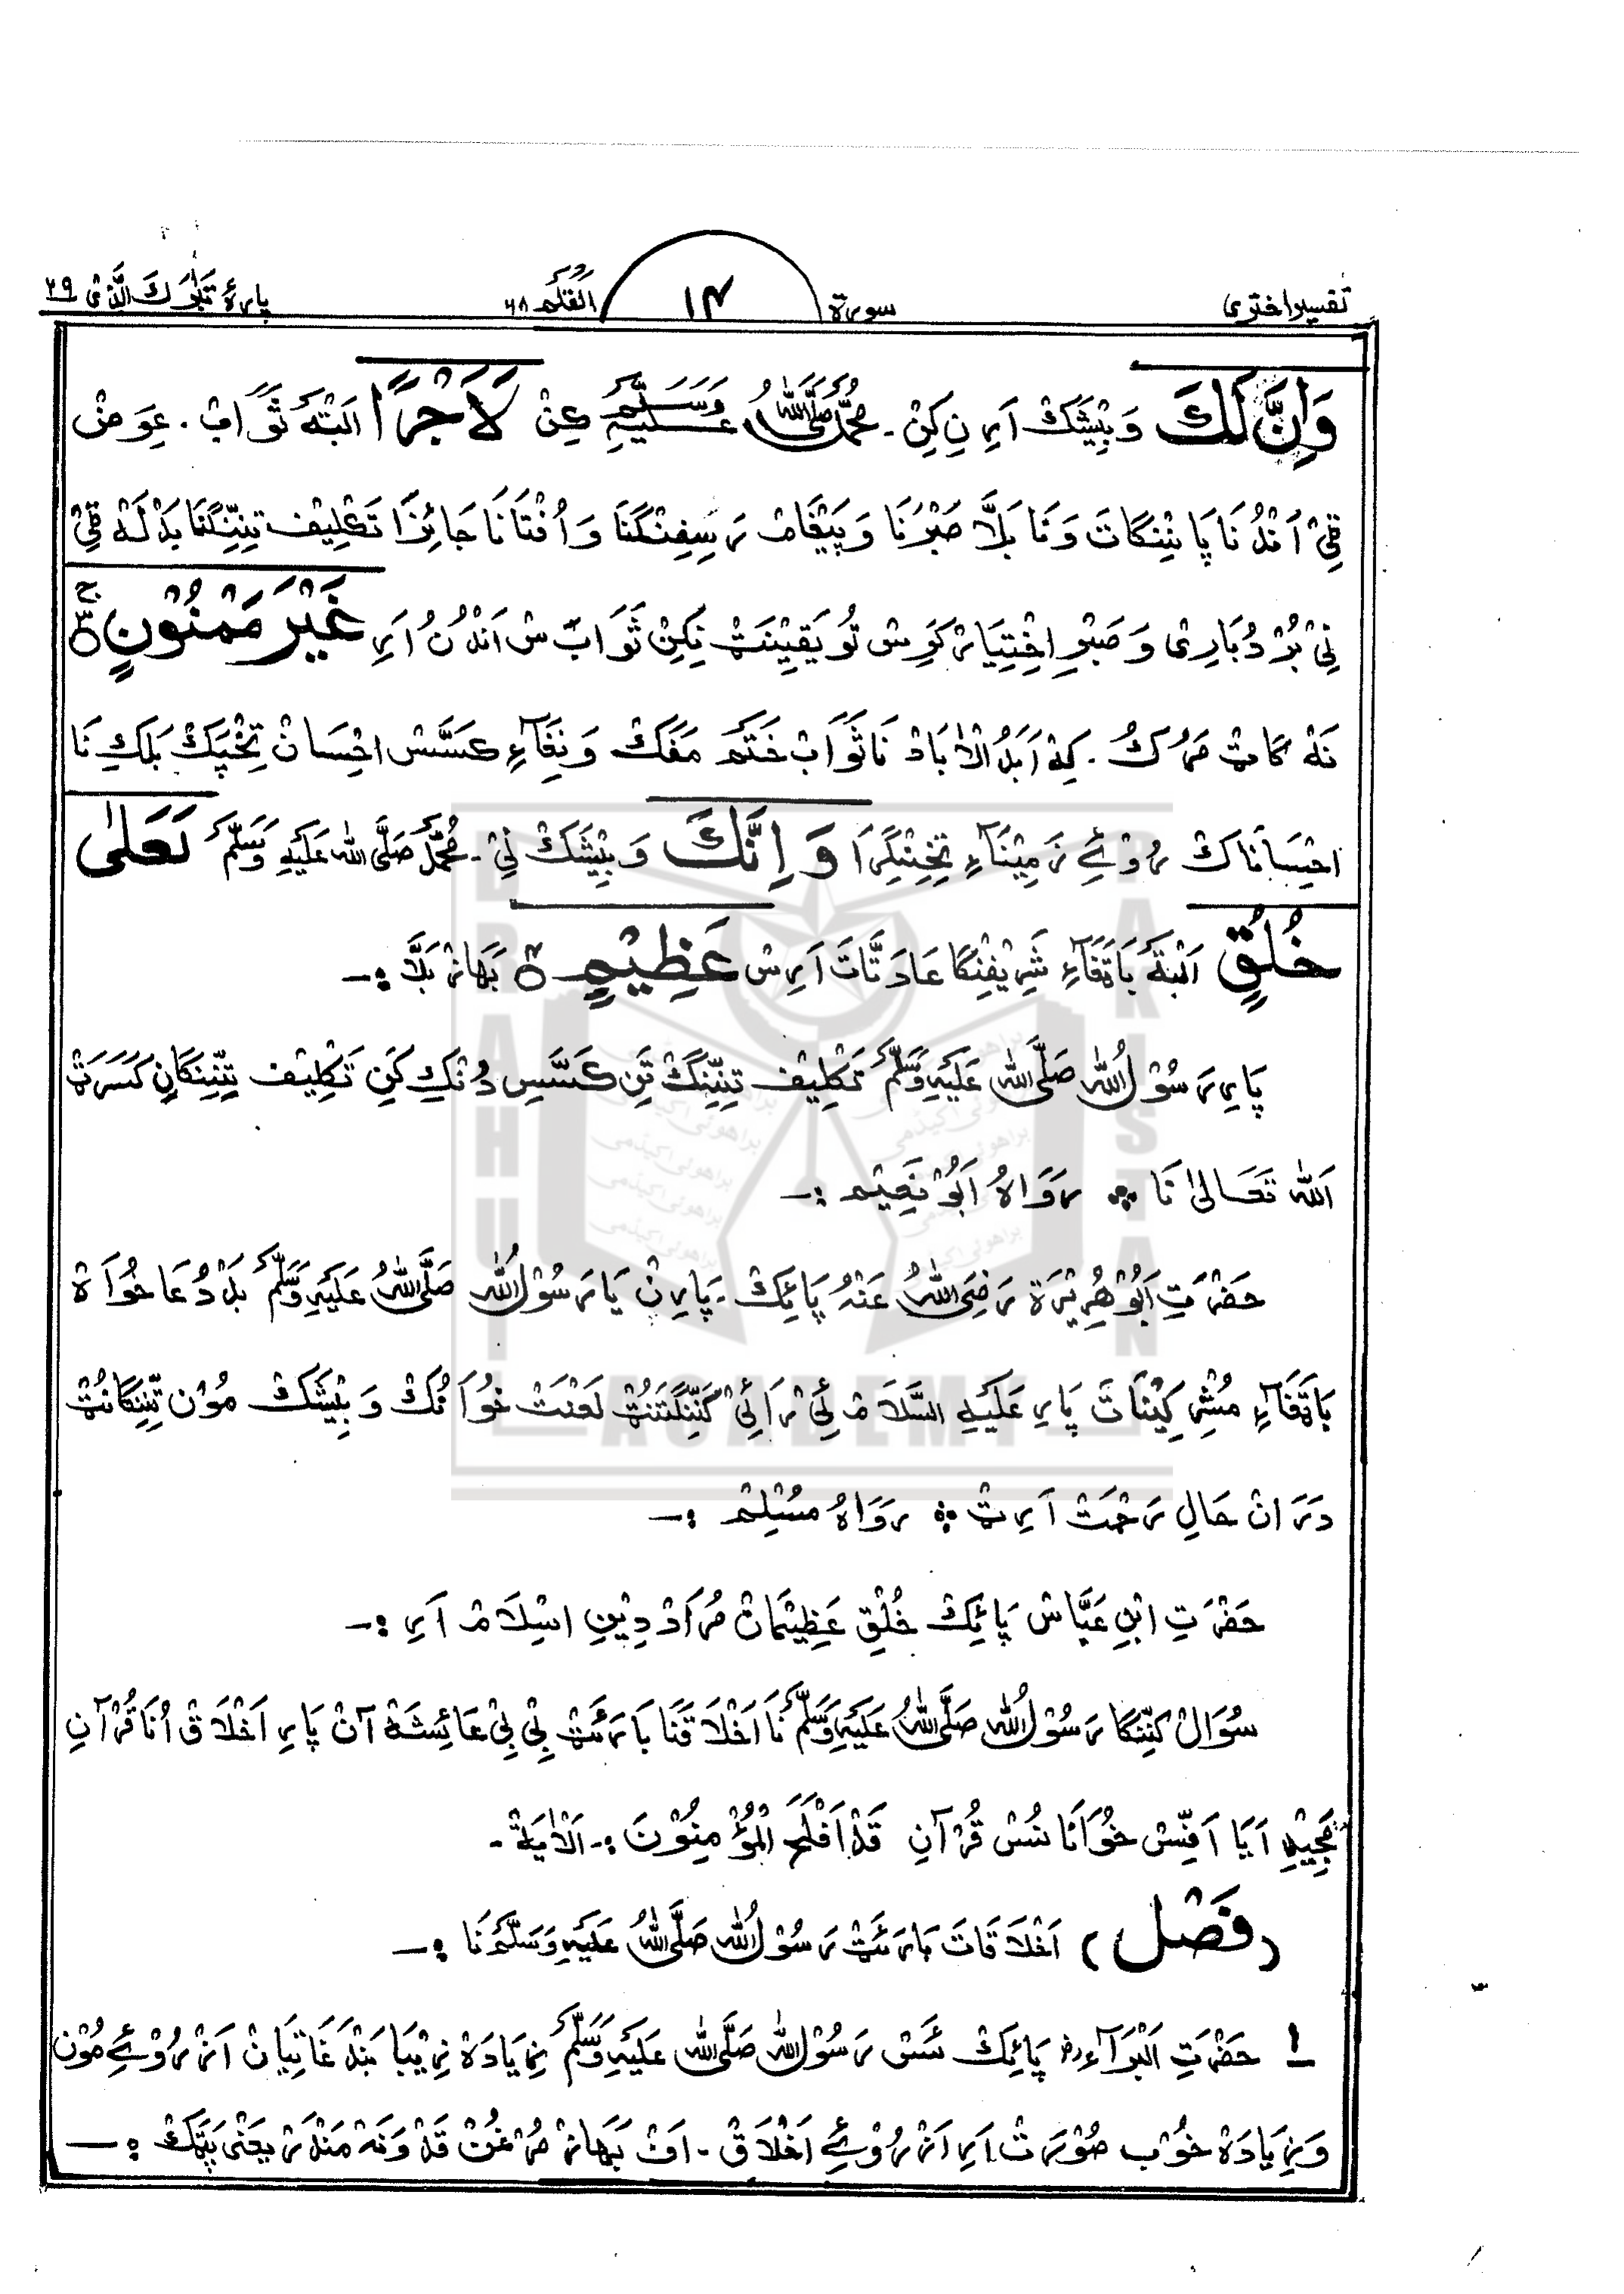 تفسیر اختری سورة ۱۴ القلم ۶۸ پارۂ تَبٰرَكَ الَّذِیْ ۲۹
وَاِنَّ لَكَ وَبِیْشَكْ اَرِنِ كِنْ۔ مُحَمَّدْ صَلَّی اللهُ عَلَیْهِ وَسَلَّمَ كِنْ لَاَجْرًا اَلْبَتَّه ثَوَابْ۔ عِوَضْ
فِیْ اَنْدُنَا پَانِنْگَاتَ وَنَا بَلَّا صَبْرْنَا وَپَیْغَامْ رَسِفِنْگَنَا وَاُفْتَانَا جَائِزَا تَكْلِیْفْ تِنِنِّگنَا بَدْلَهْ فِیْ
نِیْ بُرْدُبَارِیْ وَصَبْرِ اِخْتِیَارْ كَرِسْ تُو یَقِیْنَتْ نِكِنْ ثَوَابَسْ اَنْدُنُ اَرِ غَیْرَ مَمْنُوْنٍ
نَهْ كَاتْ مَرُكْ۔ كِهْ اَبَدُ الْاٰبَادْ نَا ثَوَابْ خَتَمْ مَفَكْ وَنِفَآءِ كَسَّسْ اِحْسَانْ تِخْپَكْ بَلكِ نَا
اِحْسَانَاكْ رُوْئے زَمِیْنَآءِ تِخِنْگِرَا وَاِنَّكَ وَبِیْشَكْ نِیْ۔ مُحَمَّدْ صَلَّی اللهُ عَلَیْهِ وَسَلَّمَ لَعَلٰی
خُلُقٍ اَلْبَتَّه بَاتَفَآءِ شَرِیْفِنْگَا عَادَتَّاتَ اَرِسْ عَظِیْمٍ بَهَازْ بَلَّا :۔
پَارِ رَسُوْلُ اللهِ صَلَّی اللهُ عَلَیْهِ وَسَلَّمَ تَكْلِیْفْ تِنِنِّگْ تَنِ كَسَّسِ دُنْكِ كَنِ تَكْلِیْفْ تِنِنِّگَانِ كَسَرَتْ
اَللهْ تَعَالیٰ نَا ٭ رَوَاهُ اَبُوْ نَعِیْمْ :۔
حَضْرَتِ اَبُوْ هُرِیْرَة رَضِیَ اللهُ عَنْهُ پَائِكْ۔ پَارِنْ یَا رَسُوْلُ اللهِ صَلَّی اللهُ عَلَیْهِ وَسَلَّمَ بَدْ دُعَا خُوَاهْ
بَاتَفَآءِ مُشْرِكِیْنَاتَ پَارِ عَلَیْهِ السَّلَامْ ئِیْ رَائِیْ كَنِّنْگَتَنُتْ لَعْنَتْ خُوَانُكْ وَبِیْشَكْ مُوْن تِنِّنگَانُتْ
دَرَانْ حَالِ رَحْمَتْ اَرِتْ ٭ رَوَاهُ مُسْلِمْ :۔
حَضْرَتِ ابْنِ عَبَّاسْ پَائِكْ خُلْقِ عَظِیْمَانْ مُرَادْ دِیْنِ اِسْلَامْ اَرِ :۔
سُوَالْ كَنِّنْگَا رَسُوْلُ اللهِ صَلَّی اللهُ عَلَیْهِ وَسَلَّمَ نَا اَخْلَاقَنَا بَارَئَتْ بِیْ بِیْ عَائِشَهْ آنْ پَارِ اَخْلَاقْ اُنَا قُرْآنِ
مَجِیْدِ اَیَا اَفِّسْ خُوَانَانُسْ قُرْآنِ قَدْ اَفْلَحَ الْمُؤْمِنُوْنَ :۔ اَلْاٰیَةْ۔
(فَصْل) اَخْلَاقَاتَ بَارَئَتْ رَسُوْلُ اللهِ صَلَّی اللهُ عَلَیْهِ وَسَلَّمَ نَا :۔
۱ حَضْرَتِ اَلْبَرَآءِ رض پَائِكْ ئَسَسْ رَسُوْلُ اللهِ صَلَّی اللهُ عَلَیْهِ وَسَلَّمَ زِیَادَهْ زِیْبَا بَنْدَغَاتِیَانْ اَزْ رُوْئے مُوْن
وَزِیَادَهْ خُوْب صُوْرَتْ اَرِ اَزْ رُوْئے اَخْلَاقْ۔ اَفْ بَهَازْ مُرْغُنْ قَدْ وَنَهْ مَنْدَرْ یَعْنیٰ پَتَّكْ :۔
BRAHUI
ACADEMY
PAKISTAN
براهوئی اکیڈمی